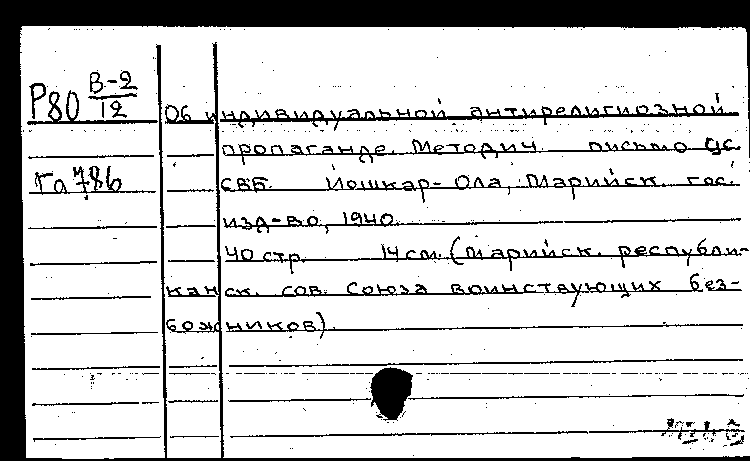 Р80 В-2
12
Об индивидуальной антирелигиозной
пропаганде. Методич. письмо ЦС
Га 786
СВБ. Йошкар-Ола, Марийск. гос.
изд-во, 1940.
40 стр. 14 см. (Марийск. республи-
канск. сов. Союза воинствующих без-
божников).